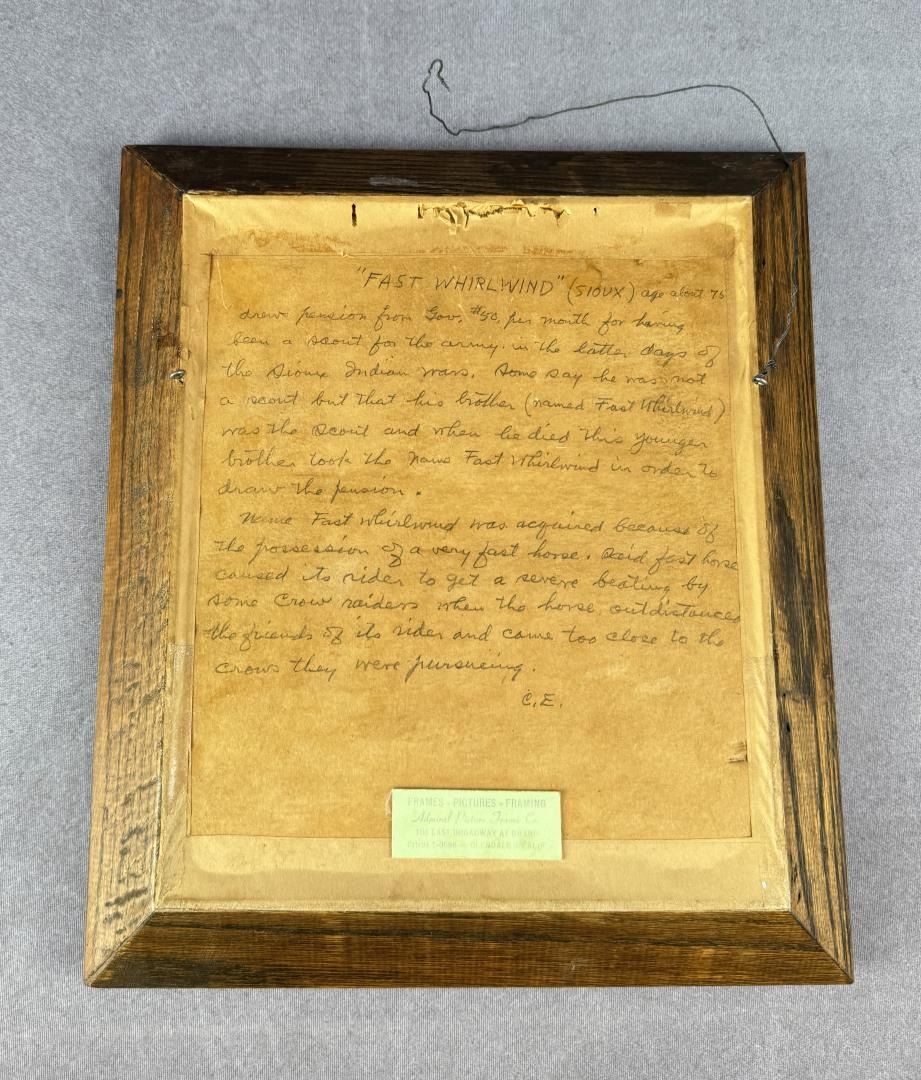 "FAST WHIRLWIND" (SIOUX) age about 75
drew pension from Gov. $50. per month for having
been a scout for the army in the latter days of
the Sioux Indian wars. Some say he was not
a scout but that his brother (named Fast Whirlwind)
was the scout and when he died this younger
brother took the name Fast Whirlwind in order to
draw the pension.
Name Fast Whirlwind was acquired because of
the possession of a very fast horse. Said fast horse
caused its rider to get a severe beating by
some Crow raiders when the horse outdistanced
the friends of its rider and came too close to the
Crows they were pursueing.
C.E.
FRAMES - PICTURES - FRAMING
Admiral Picture Frame Co.
EAST BROADWAY AT BRAND
GLENDALE CALIF.